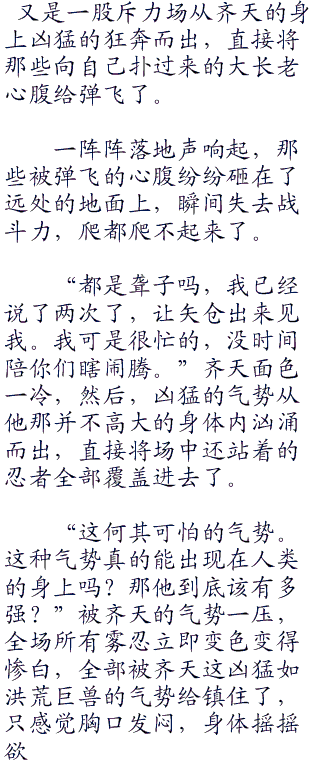 又是一股斥力场从齐天的身
上凶猛的狂奔而出，直接将
那些向自己扑过来的大长老
心腹给弹飞了。
一阵阵落地声响起，那
些被弹飞的心腹纷纷砸在了
远处的地面上，瞬间失去战
斗力，爬都爬不起来了。
“都是聋子吗，我已经
说了两次了，让矢仓出来见
我。我可是很忙的，没时间
陪你们瞎闹腾。”齐天面色
一冷，然后，凶猛的气势从
他那并不高大的身体内汹涌
而出，直接将场中还站着的
忍者全部覆盖进去了。
“这何其可怕的气势。
这种气势真的能出现在人类
的身上吗？那他到底该有多
强？”被齐天的气势一压，
全场所有雾忍立即变色变得
惨白，全部被齐天这凶猛如
洪荒巨兽的气势给镇住了，
只感觉胸口发闷，身体摇摇
欲